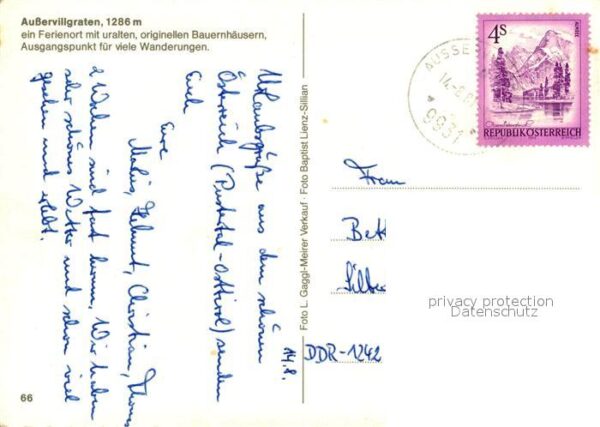 Außervillgraten, 1286 m
ein Ferienort mit uralten, originellen Bauernhäusern,
Ausgangspunkt für viele Wanderungen.
4S
ALMSEE
REPUBLIK ÖSTERREICH
AUSSE
14.-8.
9931
14.8.
Urlaubsgrüße aus dem schönen
Österreich (Pustertal-Osttirol) senden
Euch
Eure
Helmut, Christian, Thomas
2 Wochen sind fast herum, Wir haben
sehr schönes Wetter und schon viel
gesehen und erlebt.
Foto L. Gaggl-Meirer Verkauf · Foto Baptist Lienz-Sillian
Frau
Bett
Silber
DDR-1242
privacy protection
Datenschutz
66